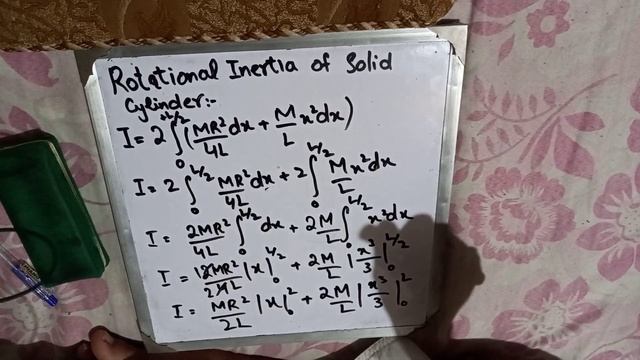 Rotational Inertia of Solid
Cylinder:-
I = 2 ∫₀^{L/2} (MR²/4L dx + M/L x² dx)
I = 2 ∫₀^{L/2} MR²/4L dx + 2 ∫₀^{L/2} M/L x² dx
I = 2MR²/4L ∫₀^{L/2} dx + 2M/L ∫₀^{L/2} x² dx
I = MR²/2L |x|₀^{L/2} + 2M/L |x³/3|₀^{L/2}
I = MR²/2L |x|₀² + 2M/L |x³/3|₀²